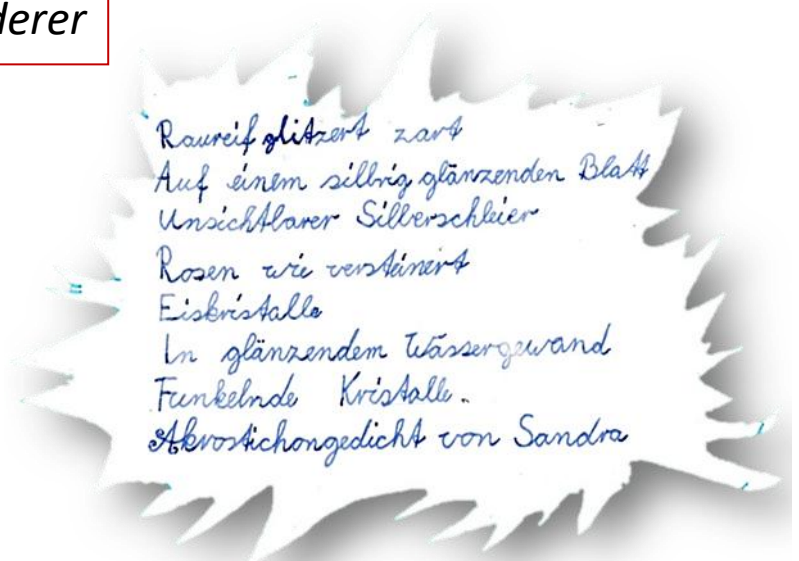 derer
Raureif glitzert zart
Auf einem silbrig glänzenden Blatt
Unsichtbarer Silberschleier
Rosen wie versteinert
Eiskristalle
In glänzendem Wassergewand
Funkelnde Kristalle.
Akrostichongedicht von Sandra